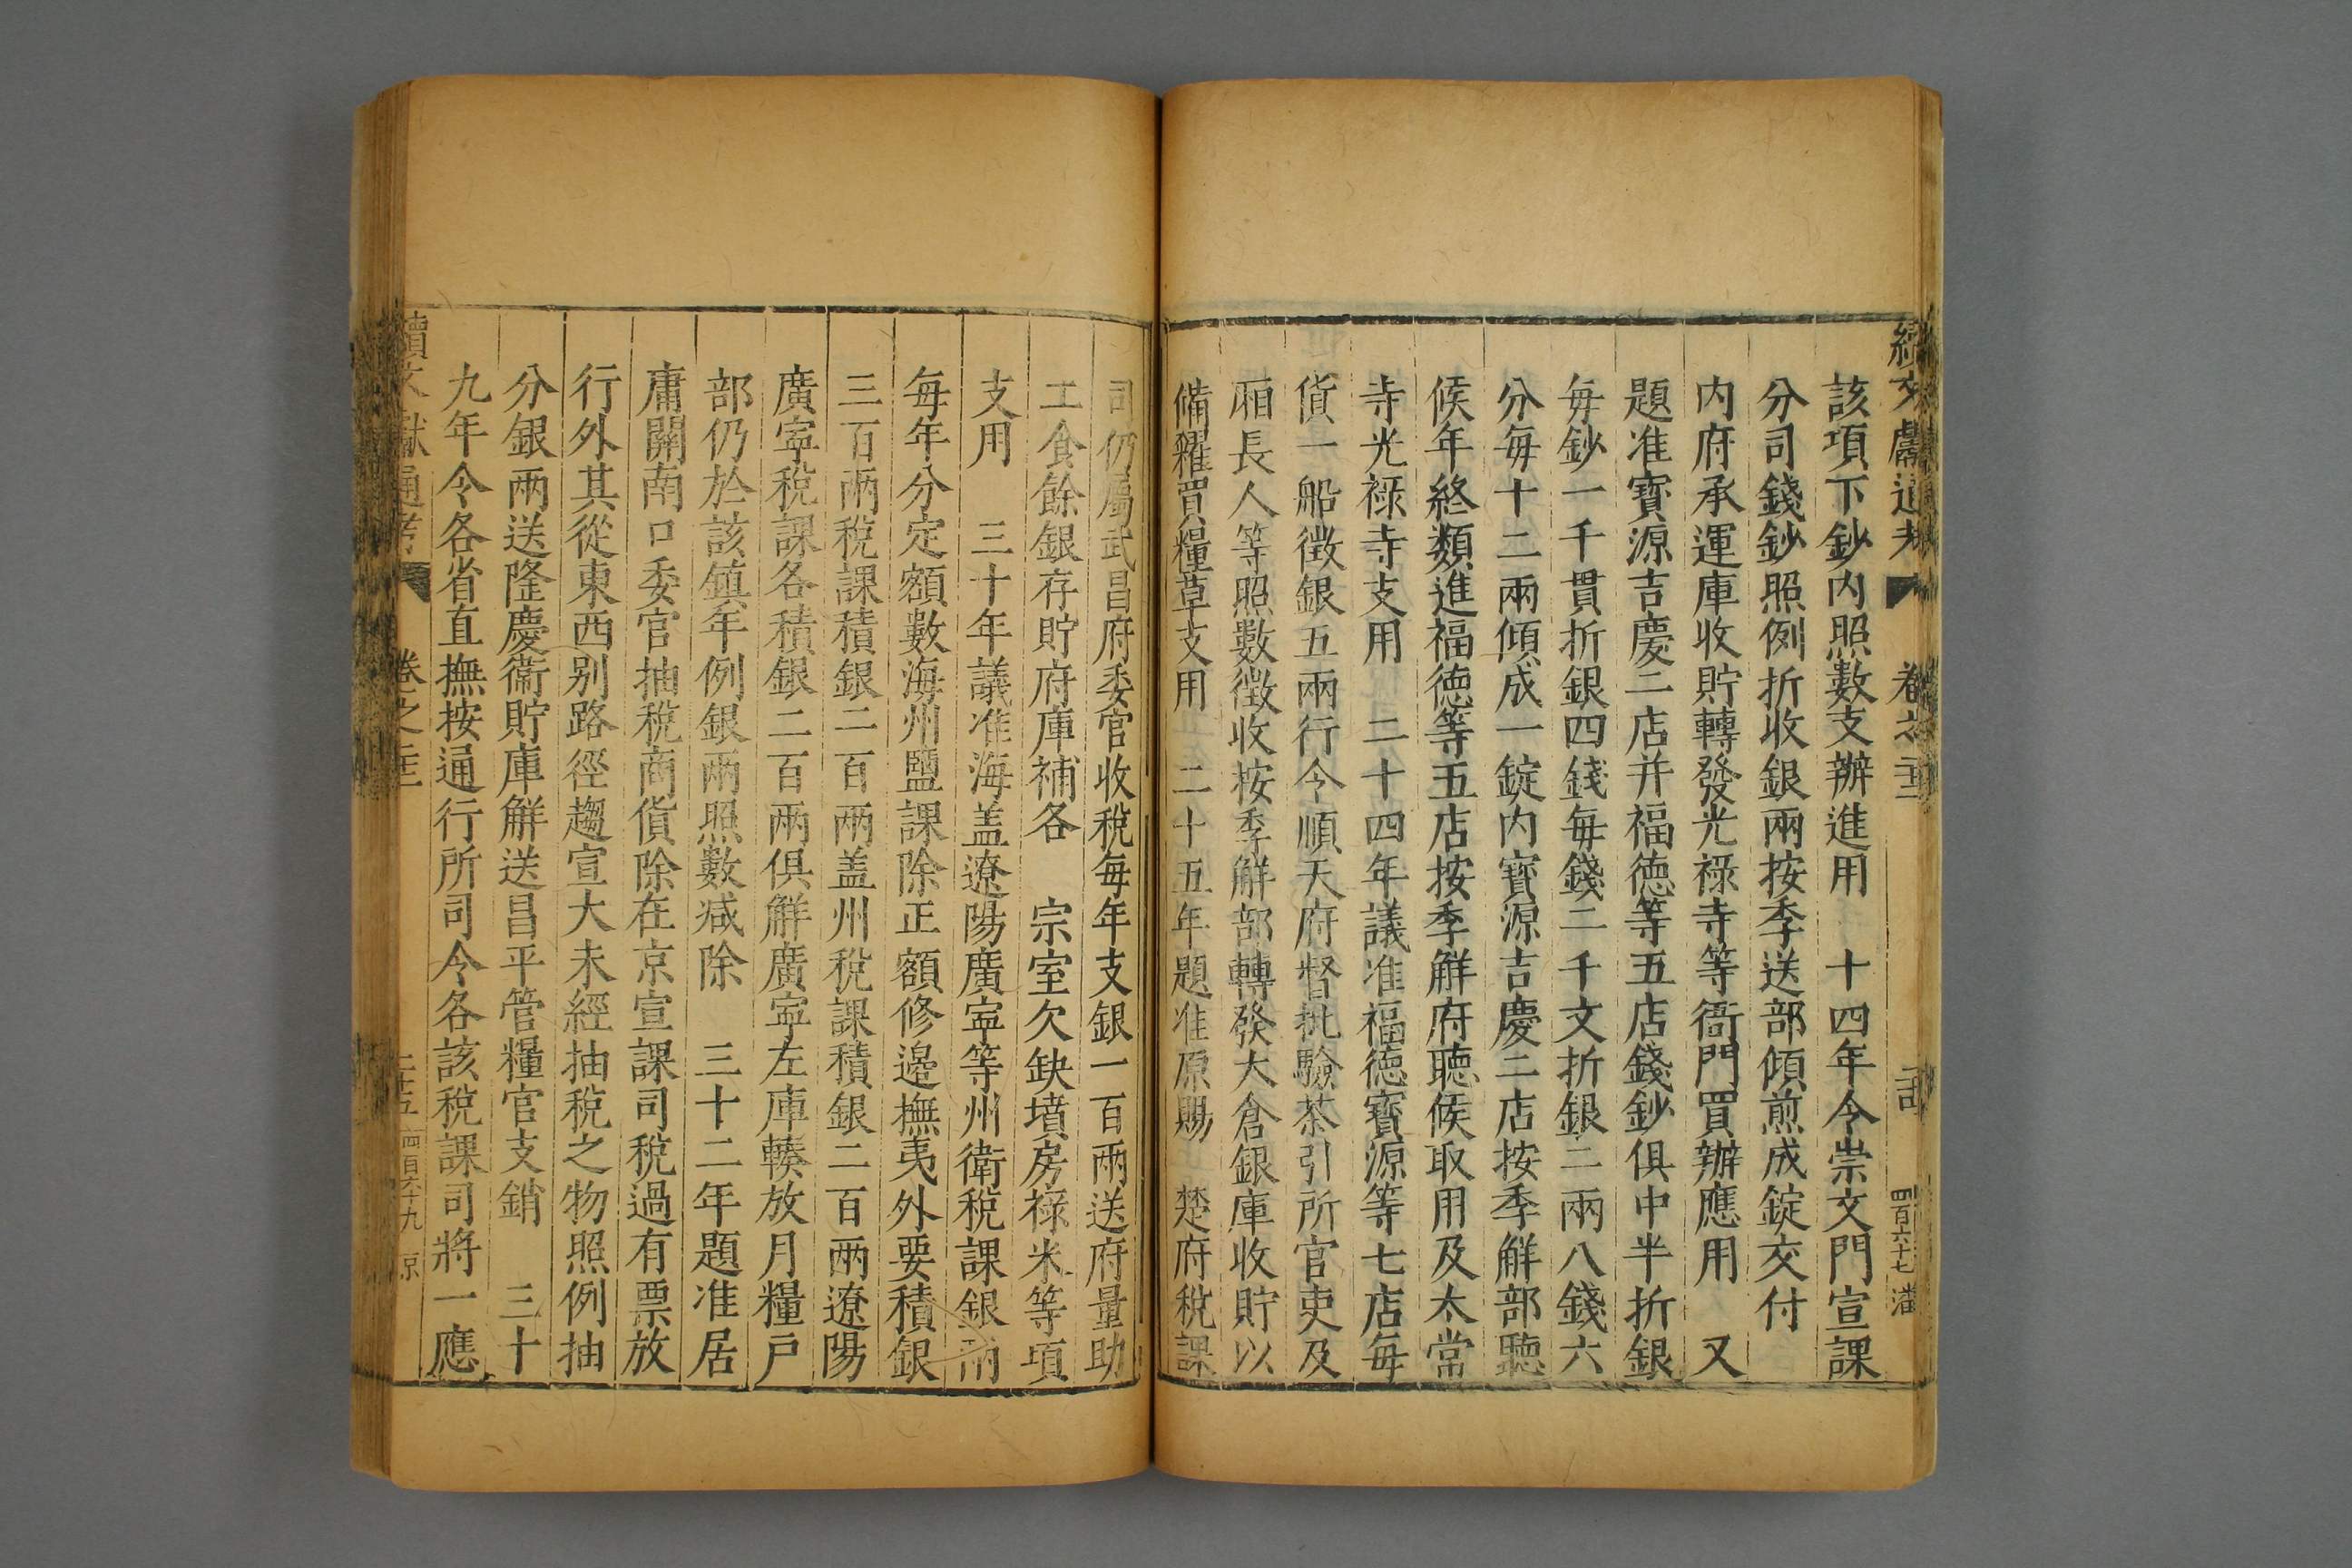 續文獻通考 卷之 四百六十七
該項下鈔內照數支辦進用 十四年令崇文門宣課
分司錢鈔照例折收銀兩按季送部傾煎成錠交付
內府承運庫收貯轉發光祿寺等衙門買辦應用 又
題准寶源吉慶二店并福德等五店錢鈔俱中半折銀
每鈔一千貫折銀四錢每錢二千文折銀二兩八錢六
分每十二兩傾成一錠內寶源吉慶二店按季解部聽
候年終類進福德等五店按季解府聽候取用及太常
寺光祿寺支用 二十四年議准福德寶源等七店每
貨一船徵銀五兩行令順天府督批驗茶引所官吏及
廂長人等照數徵收按季解部轉發太倉銀庫收貯以
備糴買糧草支用 二十五年題准原賜 楚府稅課
司仍屬武昌府委官收稅每年支銀一百兩送府量助
工食餘銀存貯府庫補各 宗室欠缺墳房祿米等項
支用 三十年議准海盖遼陽廣寧等州衛稅課銀兩
每年分定額數海州鹽課除正額修邊撫夷外要積銀
三百兩稅課積銀二百兩盖州稅課積銀二百兩遼陽
廣寧稅課各積銀二百兩俱解廣寧左庫轃放月糧戶
部仍於該鎮年例銀兩照數減除 三十二年題准居
庸關南口委官抽稅商貨除在京宣課司稅過有票放
行外其從東西别路徑趨宣大未經抽稅之物照例抽
分銀兩送隆慶衛貯庫解送昌平管糧官支銷 三十
九年令各省直撫按通行所司令各該稅課司將一應
續文獻通考 卷之 二十五 四百六十九